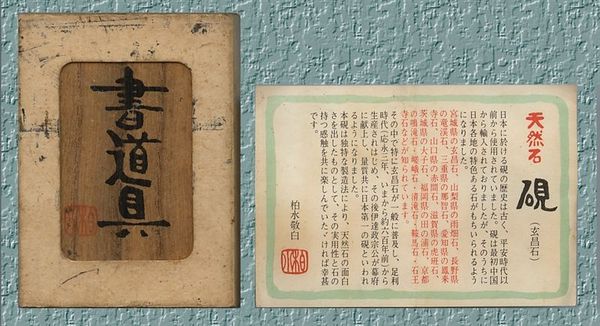 書道具
天然石
硯
(玄昌石)
日本に於ける硯の歴史は古く、平安時代以
前から使用されていました。硯は最初中国
から輸入されておりましたが、そのうちに
日本各地の特色ある石がもちいられるよう
になりました。
宮城県の玄昌石、山梨県の雨畑、長野県
の竜渓石、三重県の那智石、愛知県の鳳来
寺石、山口県の赤間石、滋賀県の虎班石、
茨城県の大子石、福岡県の田の浦石、京都
の鳴滝石・嵯峨石・清滝石・鞍馬石・石王
寺石などが知られています。
その中で特に玄昌石が一般に普及し、足利
時代(応永三年、いまから約六百年前)から
生産されはじめ、その後伊達政宗公が幕府
に献上し、量質共に日本第一の硯といわれ
るようになりました。
本硯は独特な製造法により、天然石の面白
さを出したものとして、その実用性と石の
持つ感触を共に楽しんでいただければ幸甚
です。
柏水敬白